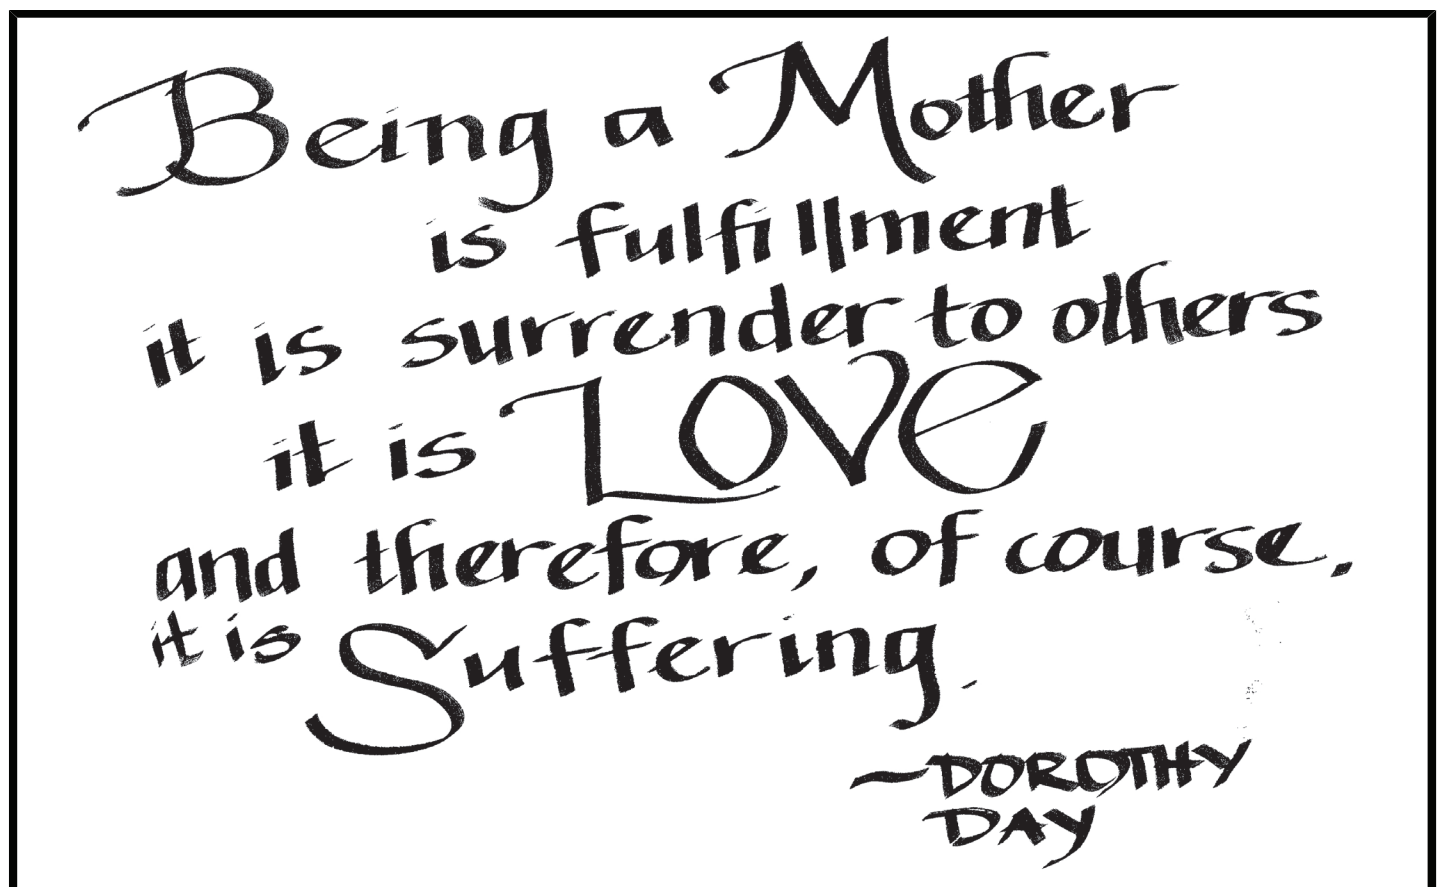 Being a Mother
is fulfillment
it is surrender to others
it is Love
and therefore, of course,
it is Suffering.
~DOROTHY
DAY